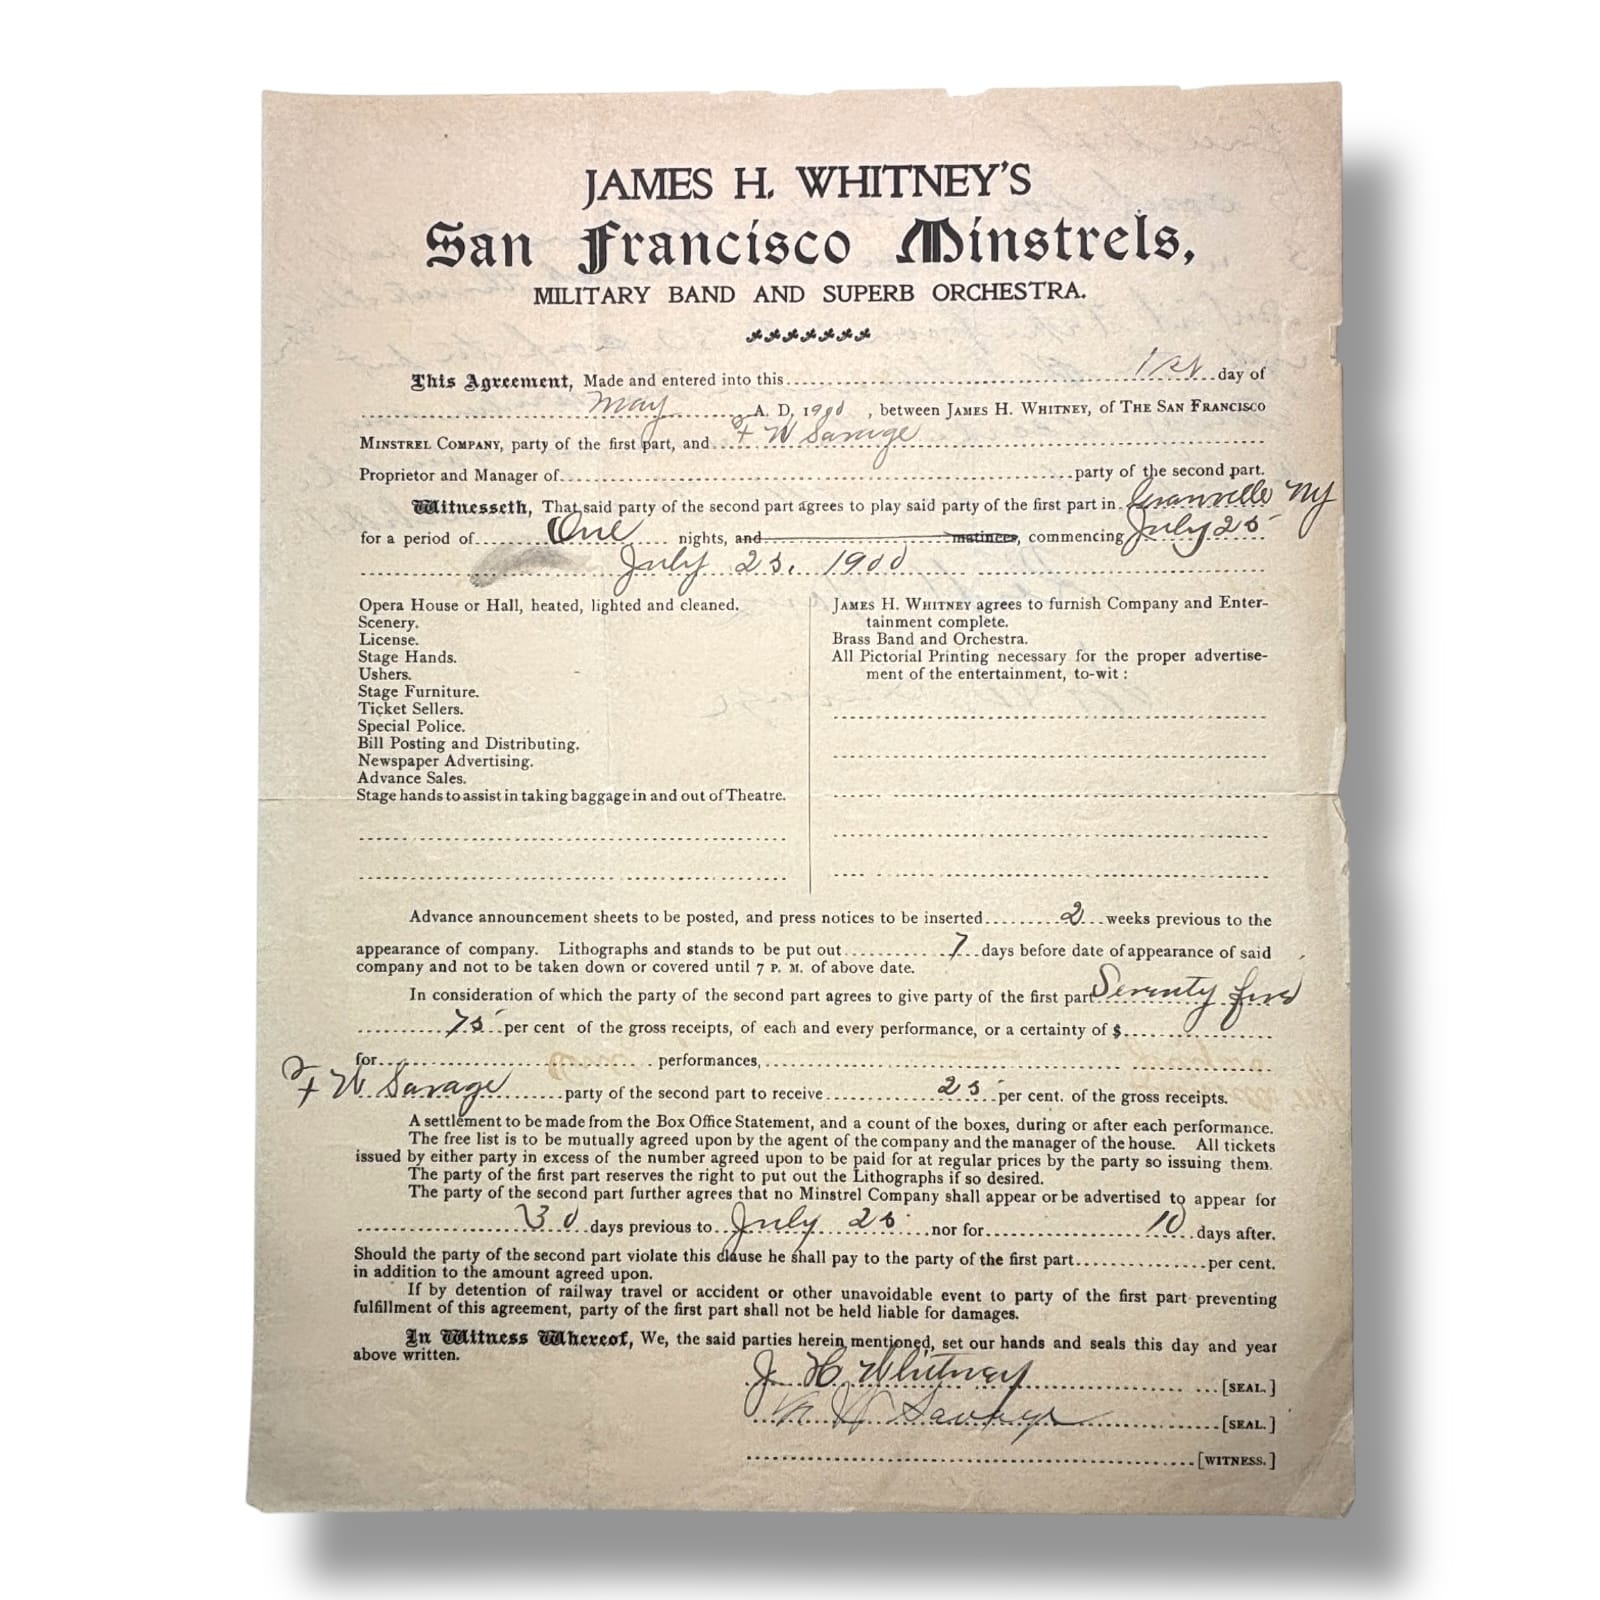 JAMES H. WHITNEY'S
San Francisco Minstrels,
MILITARY BAND AND SUPERB ORCHESTRA.
This Agreement, Made and entered into this 1st day of
May A. D. 1900, between JAMES H. WHITNEY, of THE SAN FRANCISCO
MINSTREL COMPANY, party of the first part, and F W Savage
Proprietor and Manager of party of the second part.
Witnesseth, That said party of the second part agrees to play said party of the first part in Granville NY
for a period of One nights, and matinees, commencing July 25
July 25. 1900
Opera House or Hall, heated, lighted and cleaned.
Scenery.
License.
Stage Hands.
Ushers.
Stage Furniture.
Ticket Sellers.
Special Police.
Bill Posting and Distributing.
Newspaper Advertising.
Advance Sales.
Stage hands to assist in taking baggage in and out of Theatre.
JAMES H. WHITNEY agrees to furnish Company and Enter-
tainment complete.
Brass Band and Orchestra.
All Pictorial Printing necessary for the proper advertise-
ment of the entertainment, to-wit :
Advance announcement sheets to be posted, and press notices to be inserted 2 weeks previous to the
appearance of company. Lithographs and stands to be put out 7 days before date of appearance of said
company and not to be taken down or covered until 7 P. M. of above date.
In consideration of which the party of the second part agrees to give party of the first part Seventy five
75 per cent of the gross receipts, of each and every performance, or a certainty of $
for performances,
F W Savage party of the second part to receive 25 per cent. of the gross receipts.
A settlement to be made from the Box Office Statement, and a count of the boxes, during or after each performance.
The free list is to be mutually agreed upon by the agent of the company and the manager of the house. All tickets
issued by either party in excess of the number agreed upon to be paid for at regular prices by the party so issuing them.
The party of the first part reserves the right to put out the Lithographs if so desired.
The party of the second part further agrees that no Minstrel Company shall appear or be advertised to appear for
30 days previous to July 25 nor for 10 days after.
Should the party of the second part violate this clause he shall pay to the party of the first part per cent.
in addition to the amount agreed upon.
If by detention of railway travel or accident or other unavoidable event to party of the first part preventing
fulfillment of this agreement, party of the first part shall not be held liable for damages.
In Witness Whereof, We, the said parties herein mentioned, set our hands and seals this day and year
above written.
J. H. Whitney [SEAL.]
F W Savage [SEAL.]
[WITNESS.]